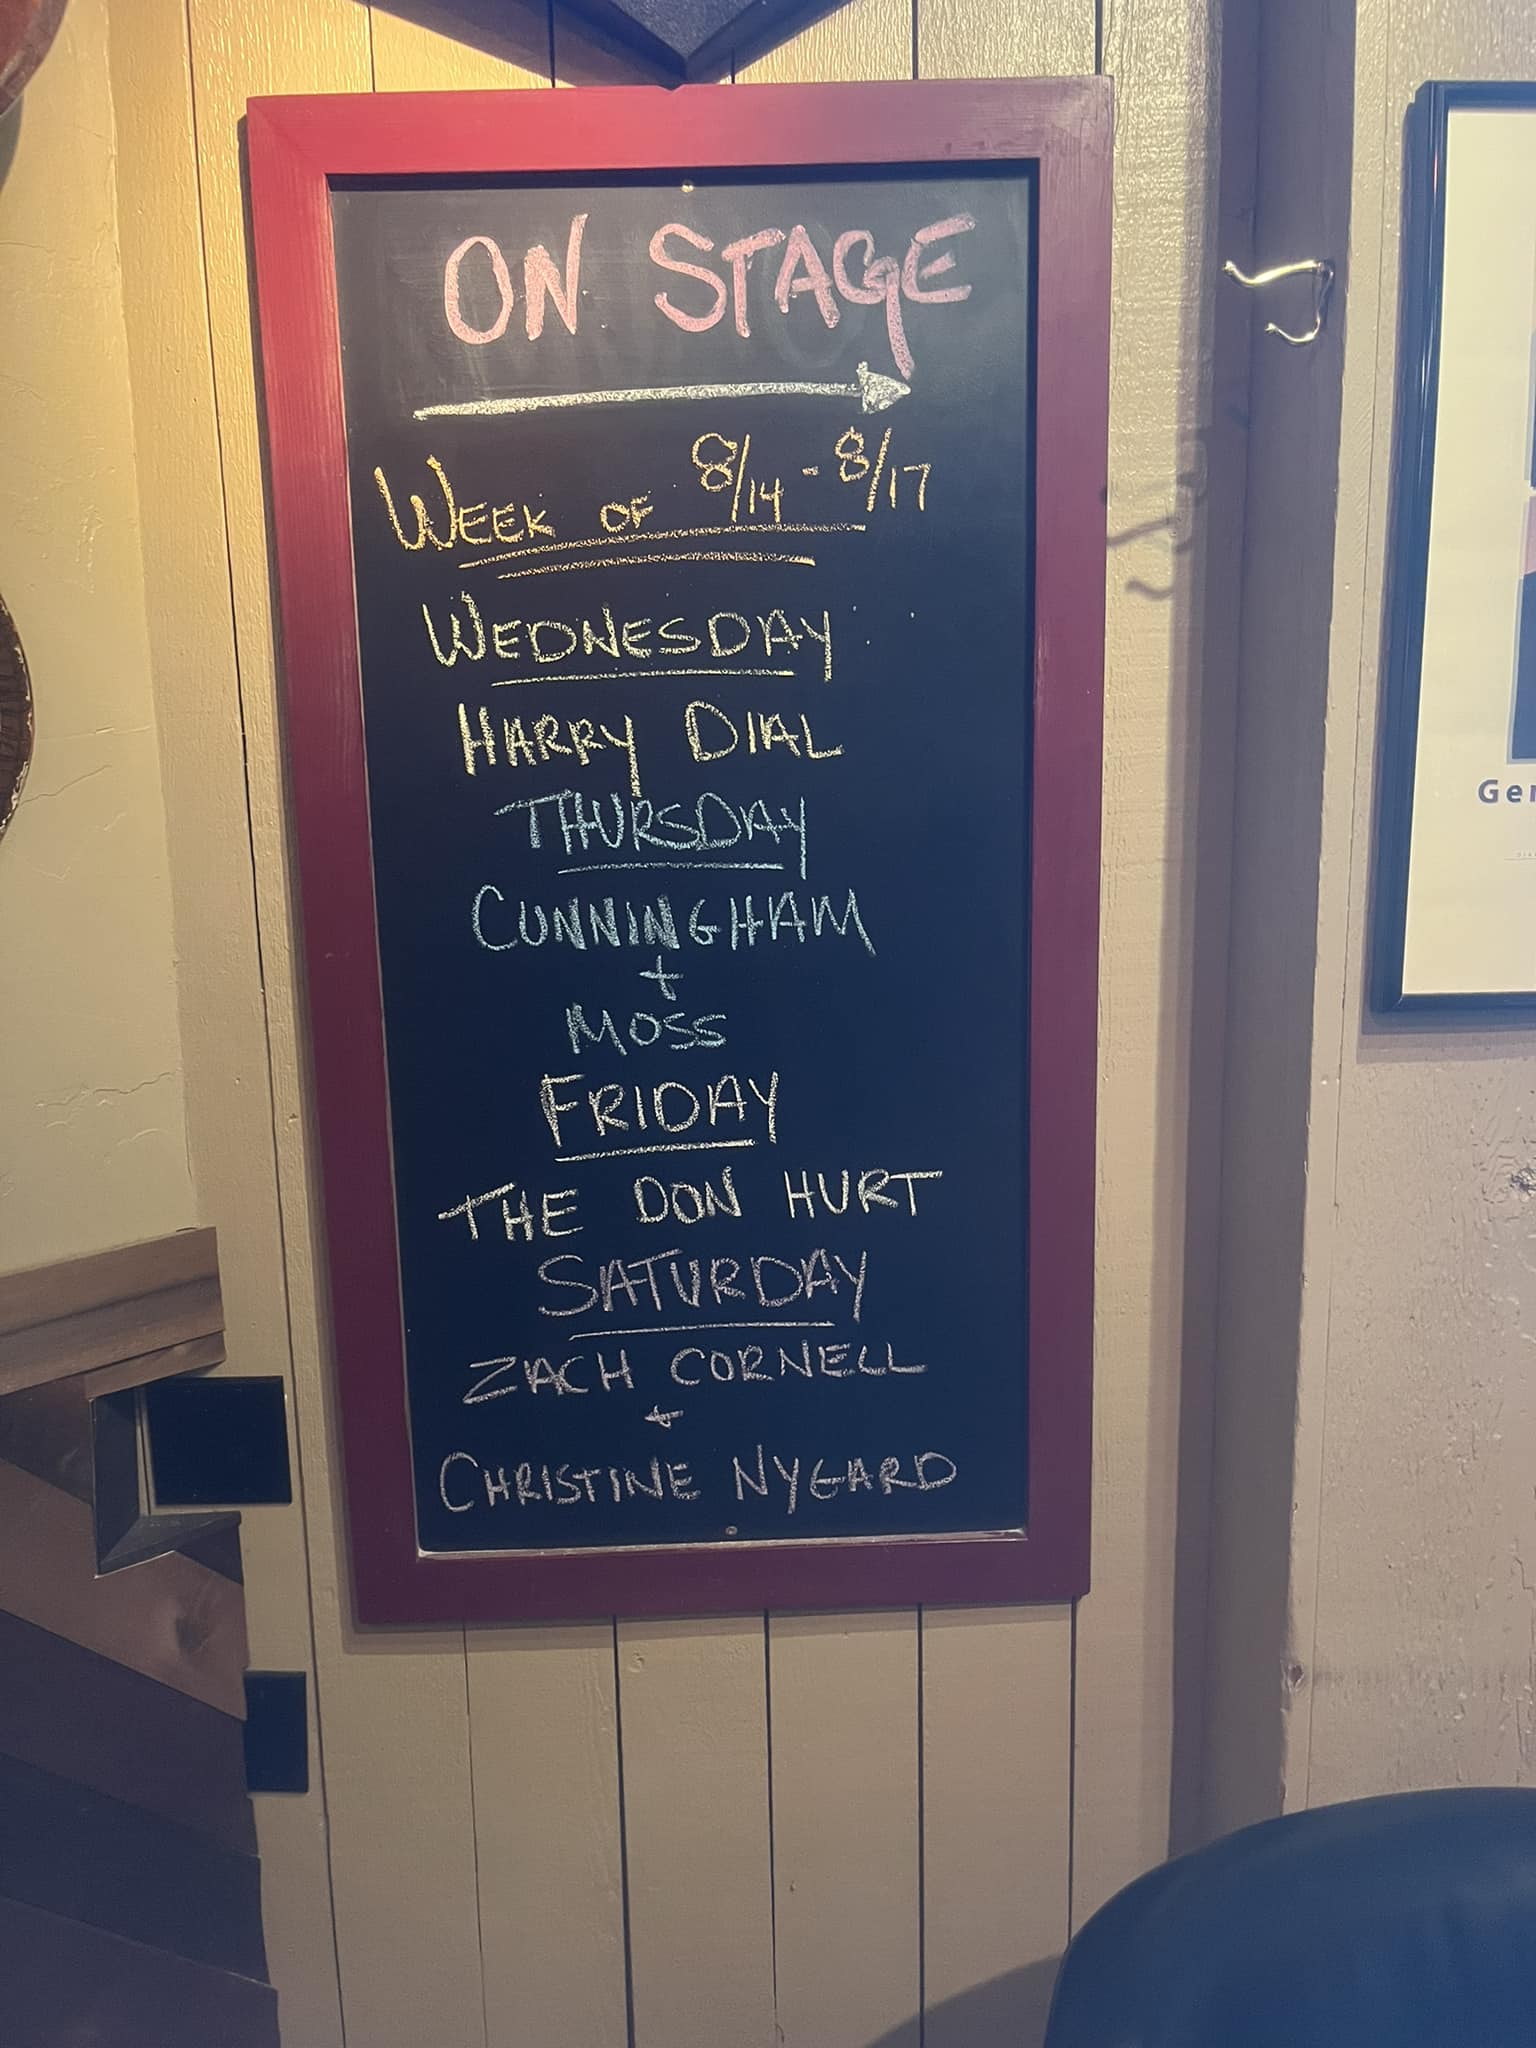 ON STAGE
WEEK OF 8/14 - 8/17
WEDNESDAY
HARRY DIAL
THURSDAY
CUNNINGHAM
+
MOSS
FRIDAY
THE DON HURT
SATURDAY
ZACH CORNELL
+
CHRISTINE NYGARD
Ger